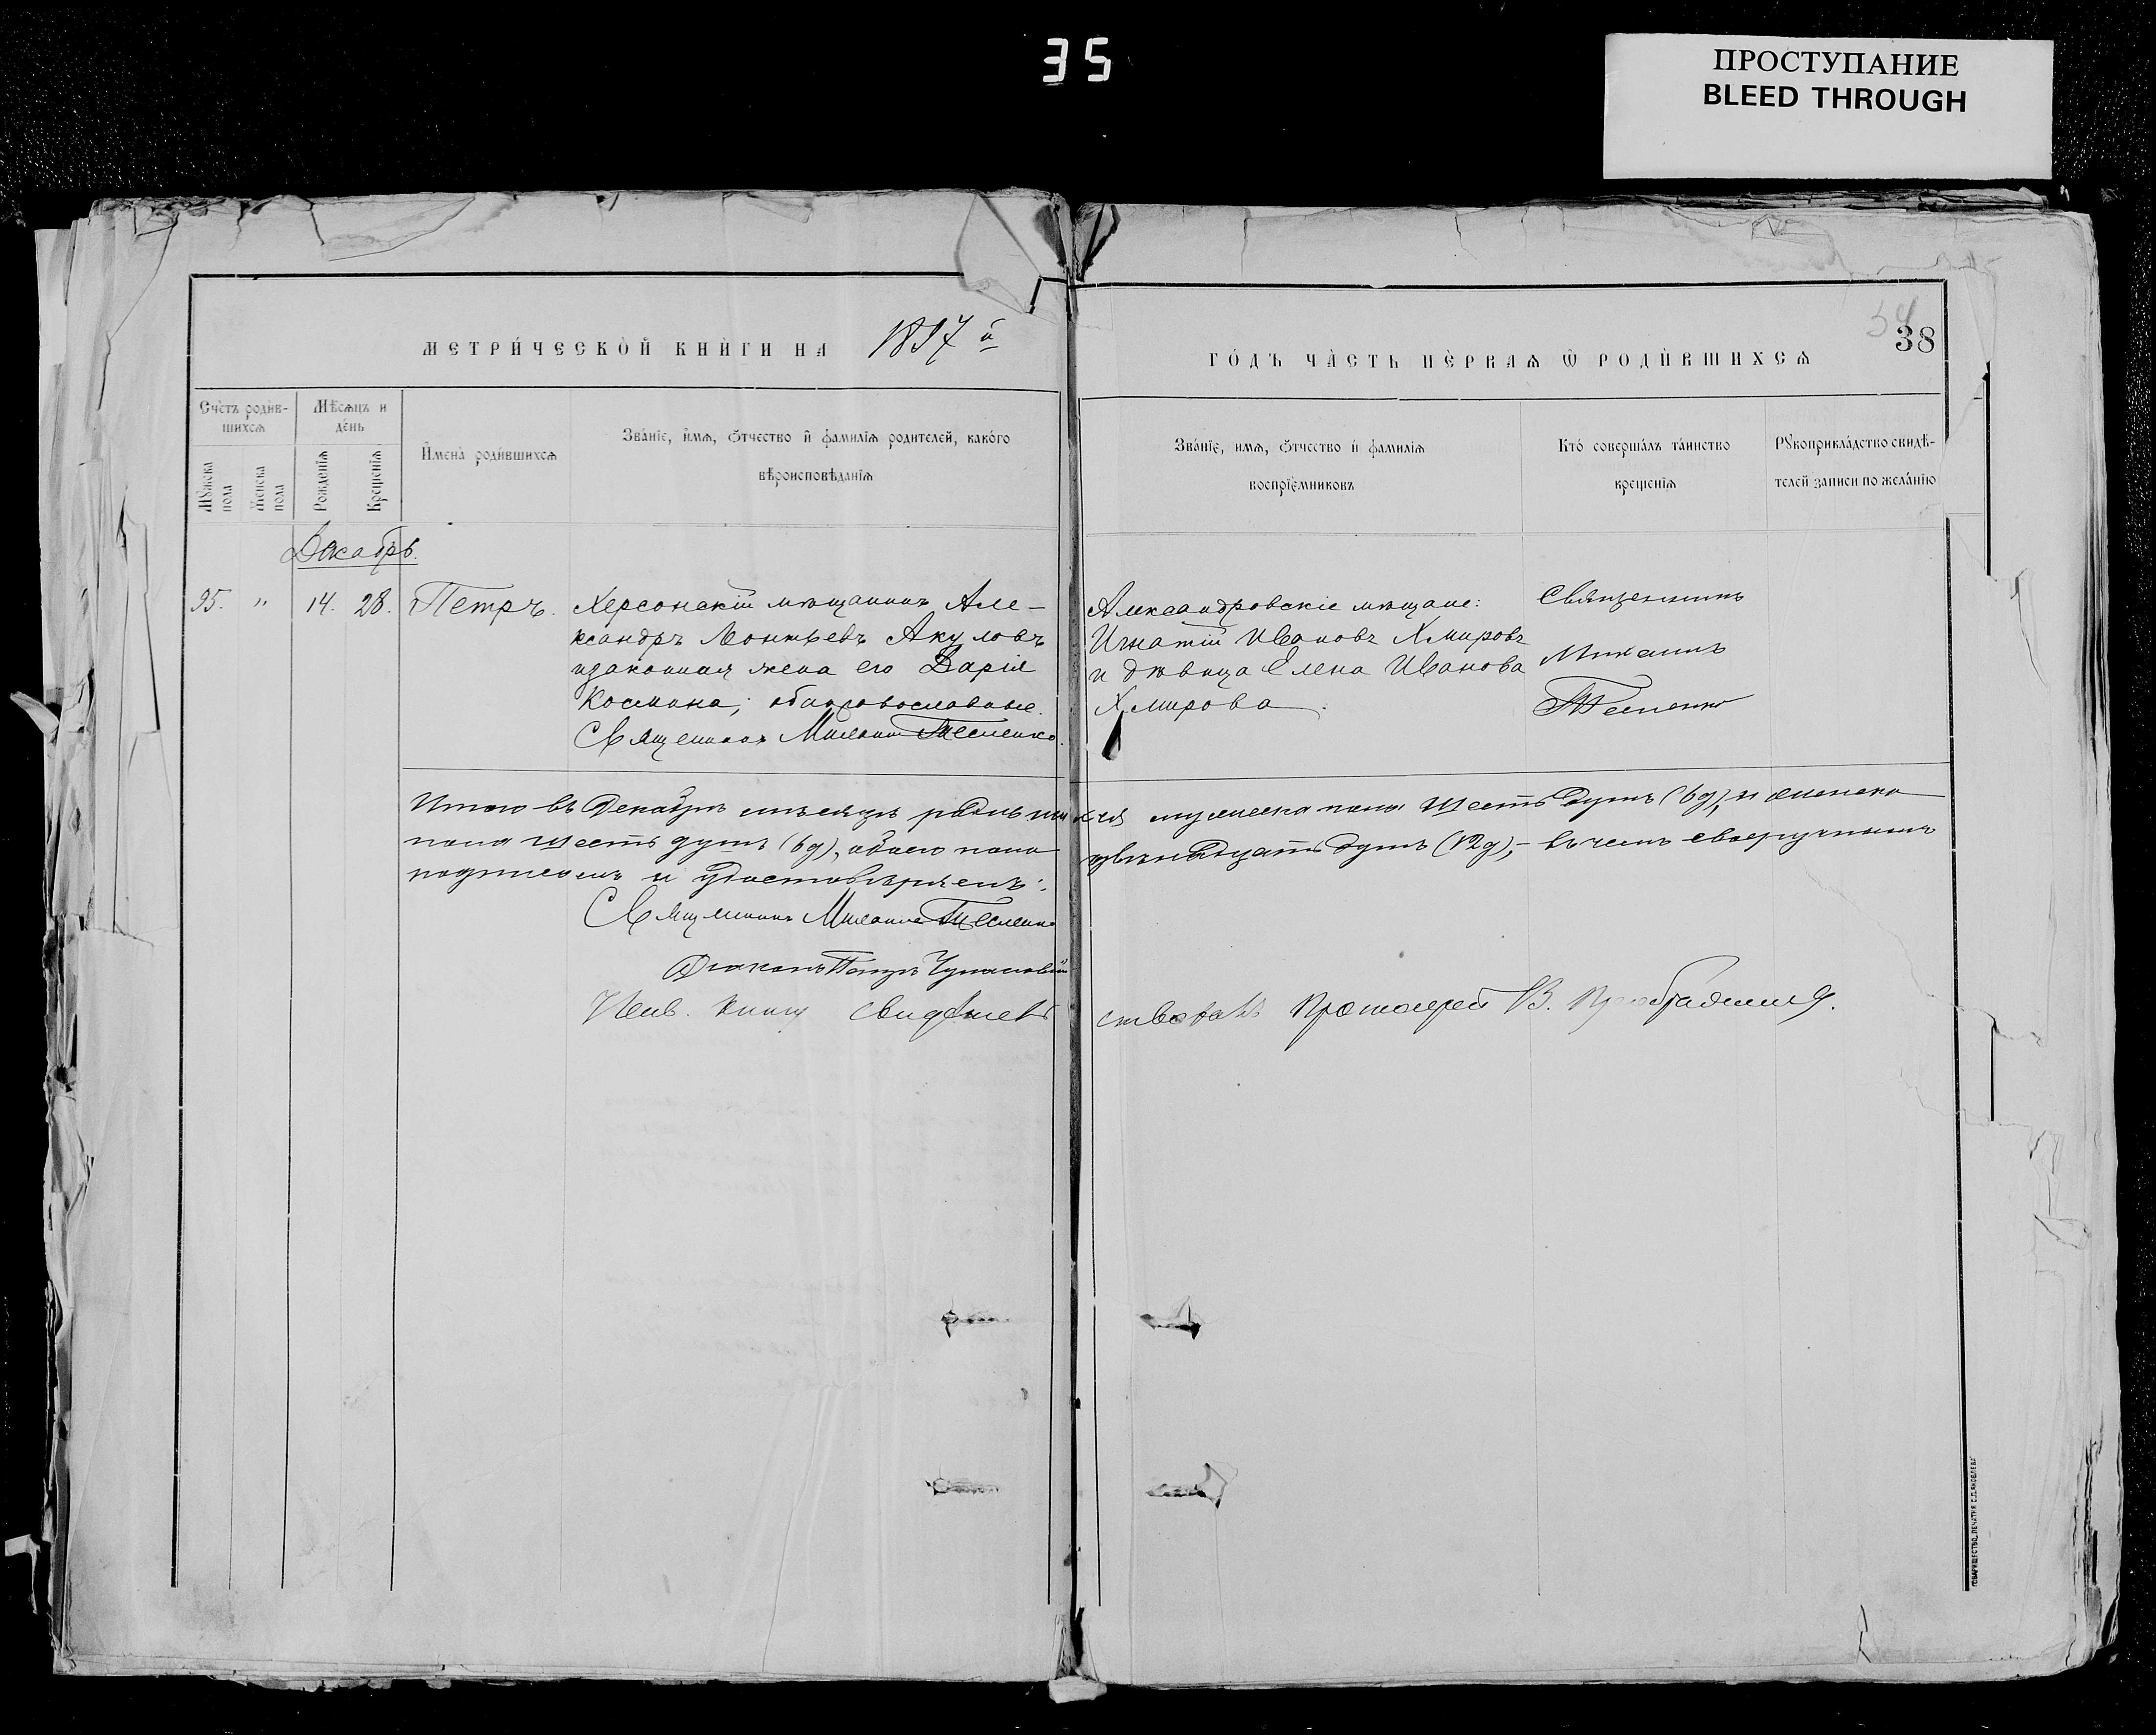 35
ПРОСТУПАНИЕ
BLEED THROUGH
МЕТРИ́ЧЕСКОЙ КНИ́ГИ НА 1897 й
ГО́ДЪ ЧА́СТЬ ПЕ́РВАЯ Ѿ РОДИ́ВШИХСЯ
38
Сче́тъ роди́в-
шихся
Мѣ́сяцъ и
де́нь
Му́жеска
пола
Женска
пола
Рожденїя
Крещенїя
И҆мена̀ роди́вшихся
Зва́нїе, и҆́мя, ѻ҆́тчество и҆ фами́лїя родителей, како́го
вѣроисповѣ́данїя
Зва́нїе, имя, ѻ҆́тчество и҆ фамилїя
воспрїе́мниковъ
Кто́ соверша́лъ та́инство
креще́нїя
Рꙋкоприкла́дство свидѣ́-
телей записи по жела́нїю
Декабрь.
35. " 14. 28. Петръ.
Херсонскій мѣщанинъ Але-
ксандръ Леонтьевъ Акуловъ
и законная жена его Дарія
Космина; оба православные.
Священникъ Михаилъ Тесленко.
Александровскіе мѣщане:
Игнатій Ивановъ Хмировъ
и дѣвица Елена Иванова
Хмирова.
Священникъ
Михаилъ
Тесленко
Итого въ Декабрѣ мѣсяцѣ родившихся мужеска пола шесть душъ (6 д), и женска
пола шесть душъ (6 д), обоего пола двѣнадцать душъ (12 д), - въ чемъ своеручнымъ
подписомъ и удостовѣряемъ:
Священникъ Михаилъ Тесленко
Діаконъ Петръ
книгу свидѣтельствовалъ Протоіерей В.
ТОВАРИЩЕСТВО "ПЕЧАТНЯ С.П.ЯКОВЛЕВА"